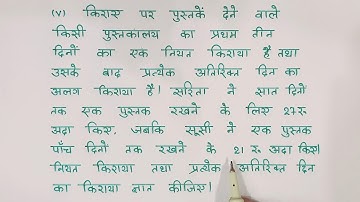 (v) किराए पर पुस्तकें देने वाले
किसी पुस्तकालय का प्रथम तीन
दिनों का एक नियत किराया है तथा
उसके बाद प्रत्येक अतिरिक्त दिन का
अलग किराया है। सरिता ने सात दिनों
तक एक पुस्तक रखने के लिए 27 रु
अदा किए, जबकि सूसी ने एक पुस्तक
पाँच दिनों तक रखने के 21 रु अदा किए।
नियत किराया तथा प्रत्येक अतिरिक्त दिन
का किराया ज्ञात कीजिए।